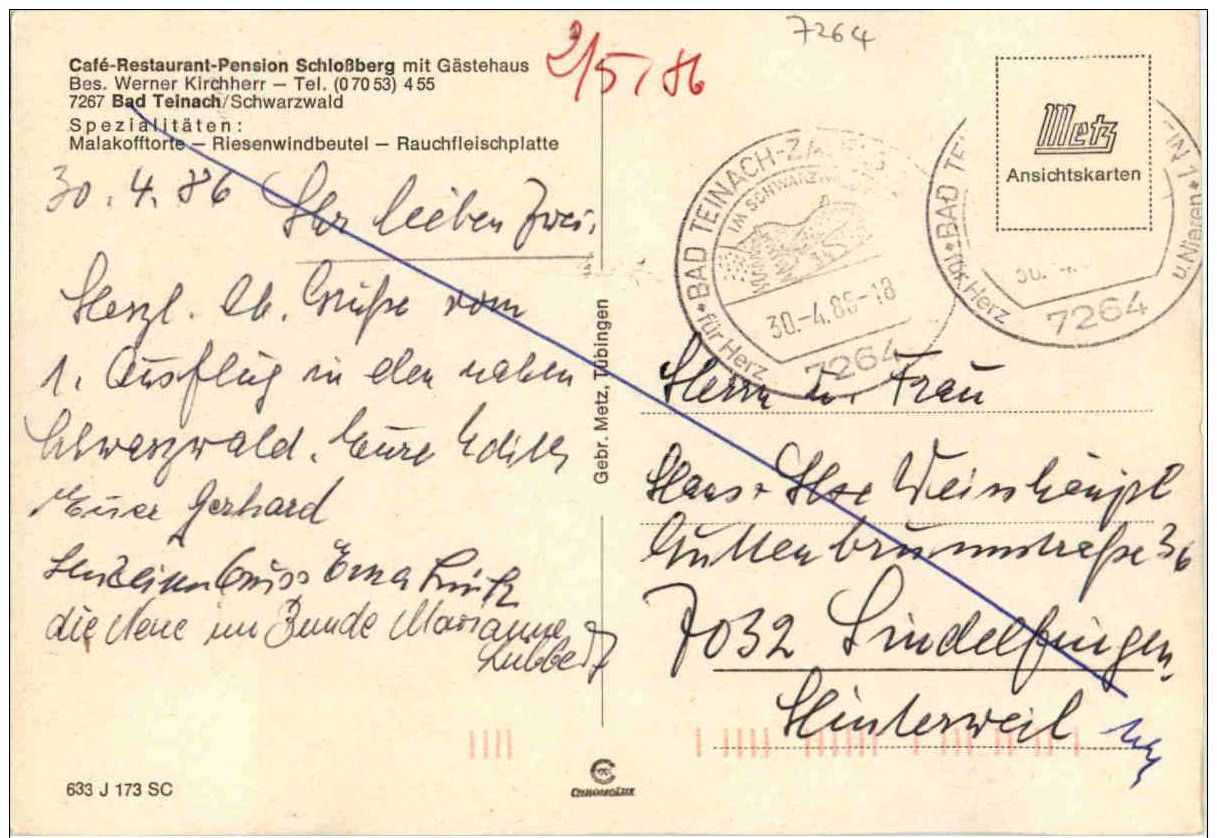 7264
2/5/86
Café-Restaurant-Pension Schloßberg mit Gästehaus
Bes. Werner Kirchherr — Tel. (0 70 53) 4 55
7267 Bad Teinach/Schwarzwald
Spezialitäten:
Malakofftorte — Riesenwindbeutel — Rauchfleischplatte
30.4.86 Ihr lieben Zwei,
Herzl. lb. Grüße vom
1. Ausflug in den nahen
Schwarzwald. Eure Edith
Euer Gerhard
Gruss Erna
die Neue im Bunde Marianne
633 J 173 SC
Gebr. Metz, Tübingen
Metz
Ansichtskarten
BAD TEINACH-ZA
IM SCHWARZW
30.-4.86-18
für Herz
7264
BAD TEI
IN 1
30. 4.
für Herz
u. Nieren
7264
Herrn u. Frau
Hans + Ilse Weisshäupl
Guttenbrunnstraße 36
7032 Sindelfingen,
Hinterweil